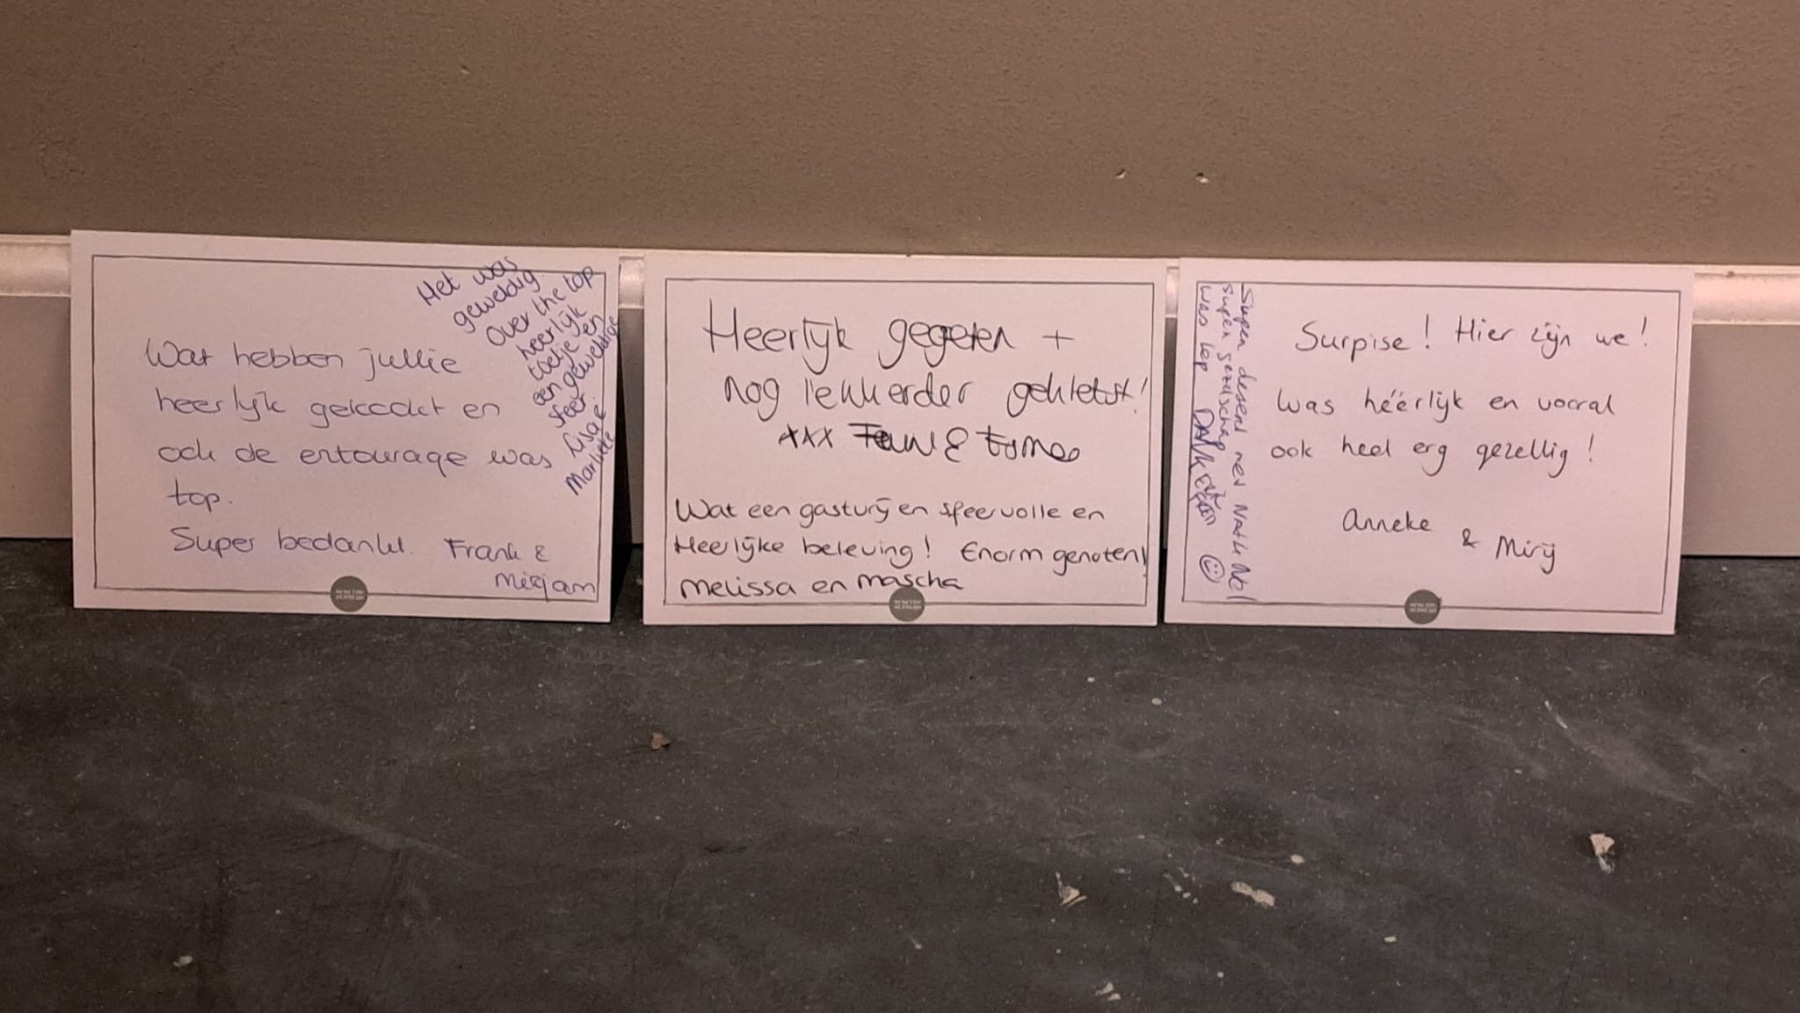 Wat hebben jullie
heerlijk gekookt en
ook de entourage was
top.
Super bedankt. Frank &
Mirjam
Het was
geweldig.
Over the top
heerlijk
toetje en
een geweldige
sfeer
Lisa &
Heerlijk gegeten +
nog lekkerder gekletst!
xxx &
Wat een gastvrij en sfeervolle en
Heerlijke beleving! Enorm genoten!
melissa en mascha
Surpise! Hier zijn we!
Was héérlijk en vooral
ook heel erg gezellig!
Anneke
& Mirij
Super dessert met
super gezelschap
was top DANK